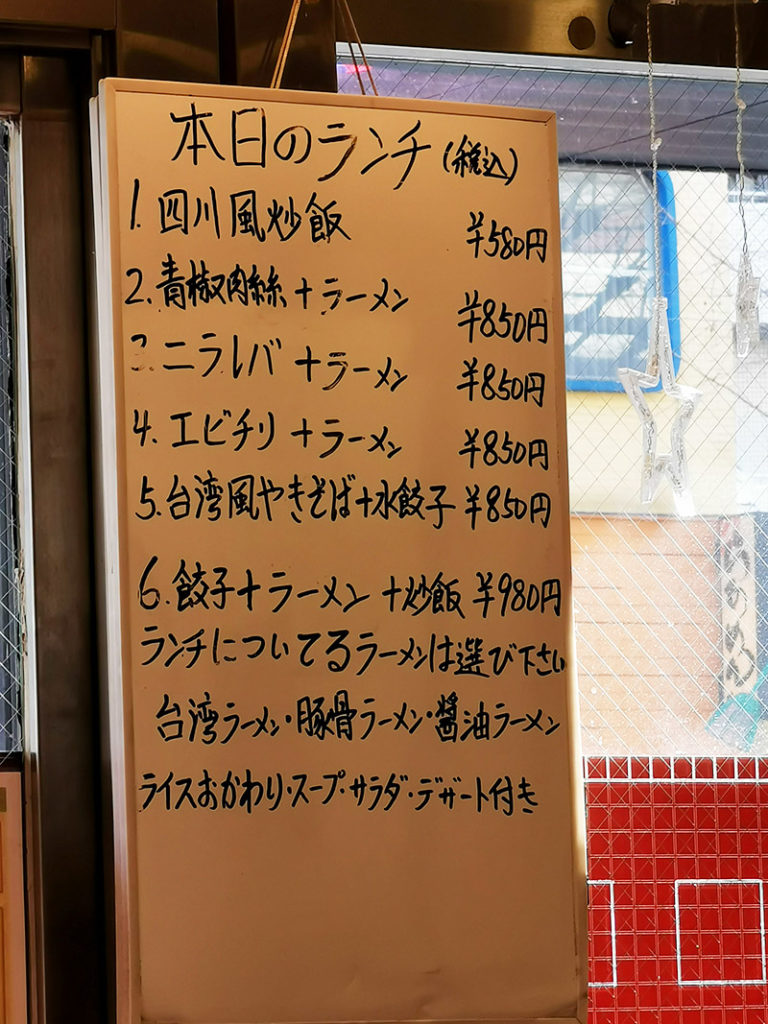 本日のランチ(税込)
1.四川風炒飯 ¥580円
2.青椒肉絲+ラーメン ¥850円
3.ニラレバ+ラーメン ¥850円
4.エビチリ+ラーメン ¥850円
5.台湾風やきそば+水餃子 ¥850円
6.餃子+ラーメン+炒飯 ¥980円
ランチについてるラーメンは選び下さい
台湾ラーメン・豚骨ラーメン・醬油ラーメン
ライスおかわり・スープ・サラダ・デザート付き